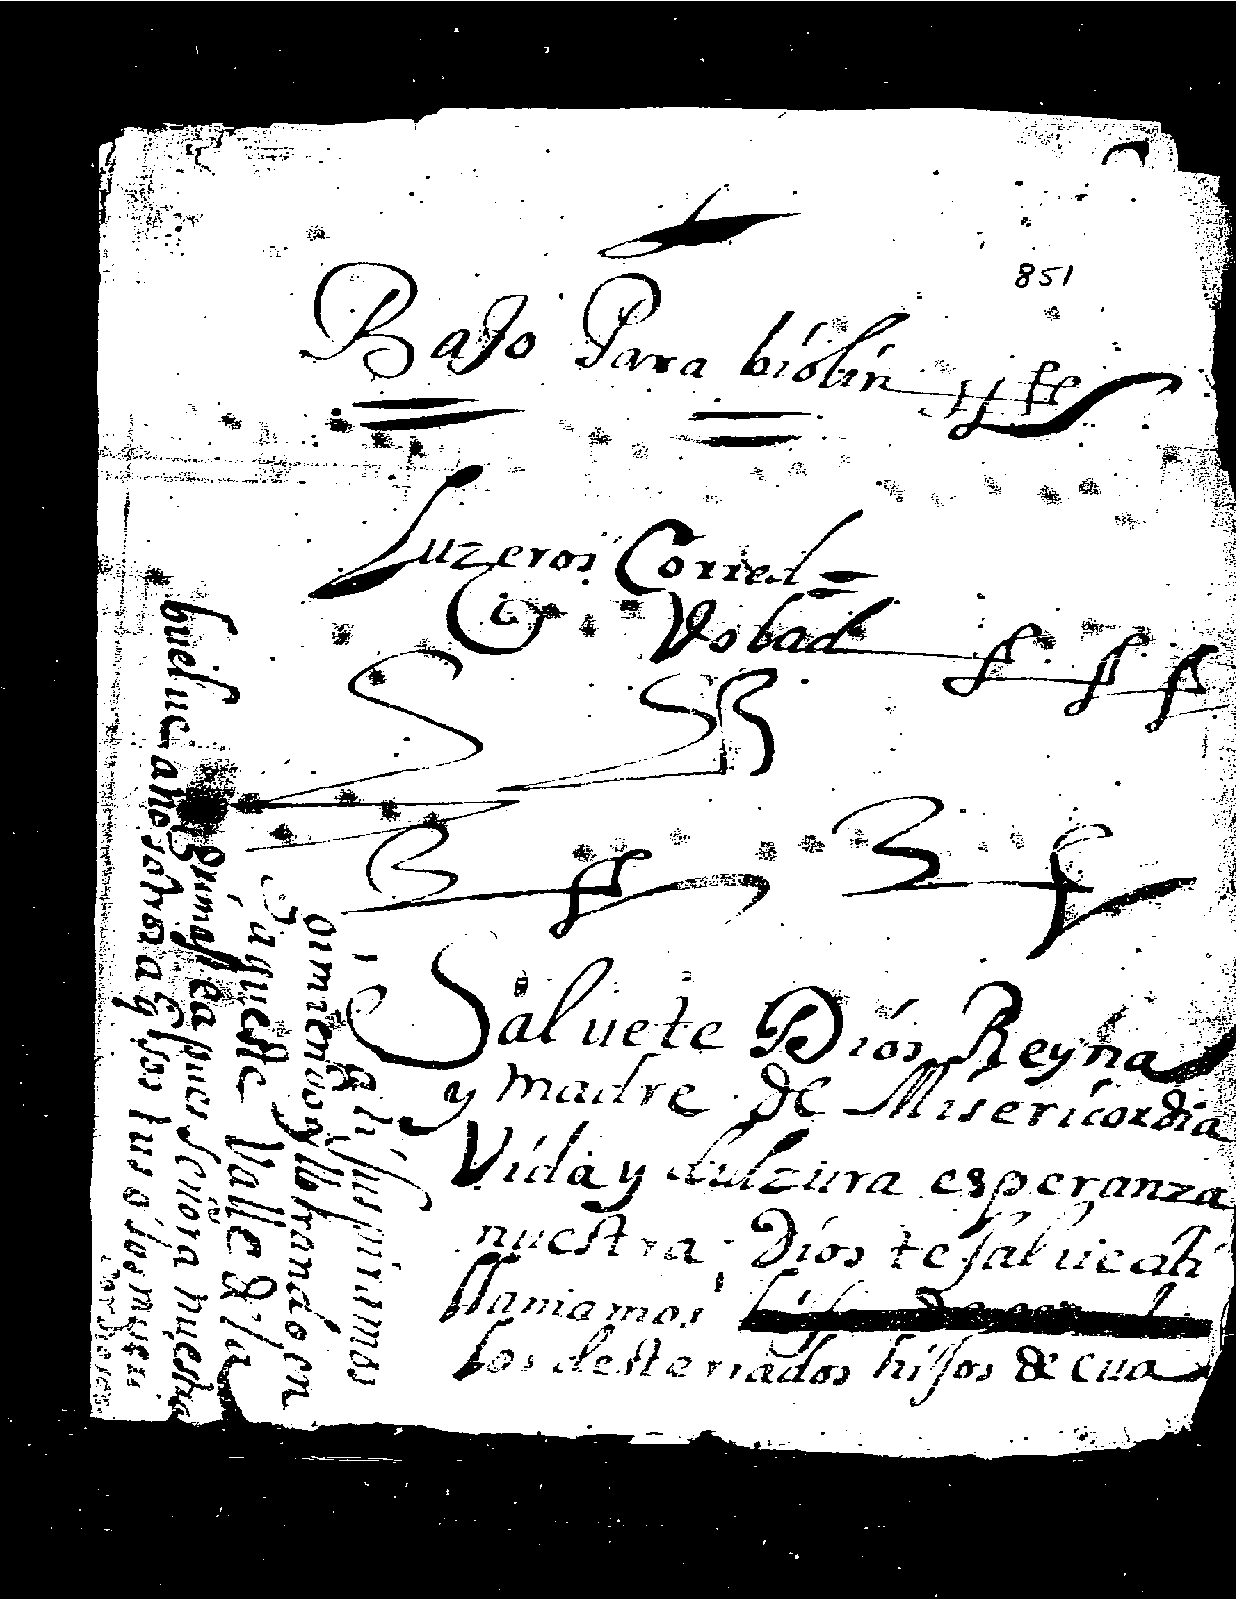 851
Bajo Para biolin
Luzeros Corred
Volad
Salvete Dios Reyna
y madre de Misericordia
Vida y dulzura esperanza
nuestra Dios te salve ati
llamamos
los desterrados hijos de eua
ati suspiramos
gimiendo y llorando en
aqueste Valle de la
grimas ea pues señora nuestra
buelue a nosotros a
esos tus ojos